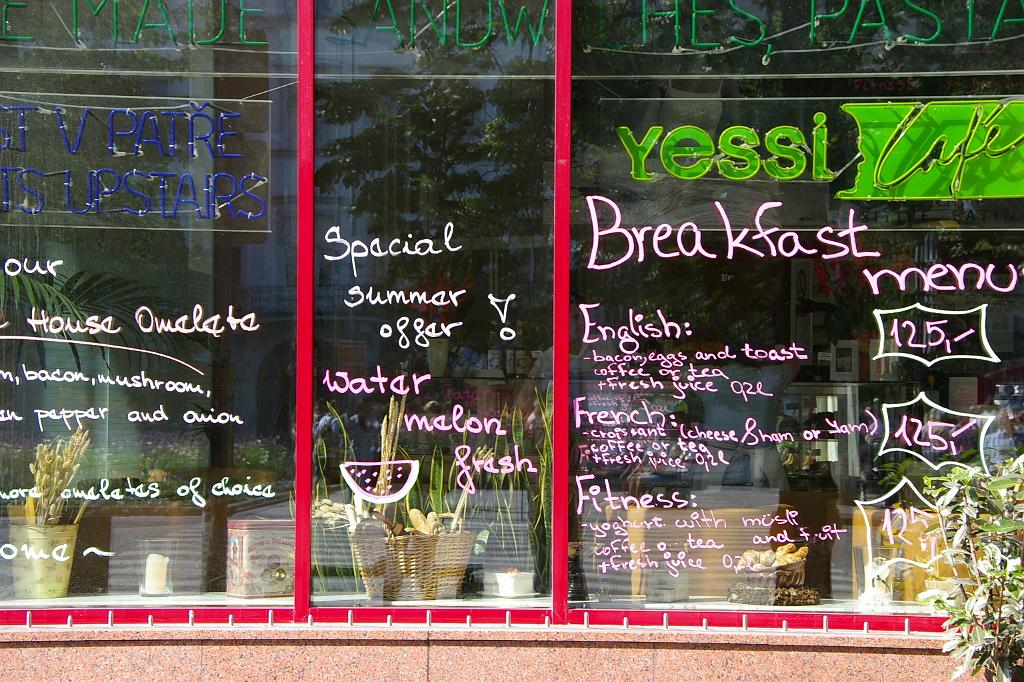 E MADE SANDWICHES, PASTA
ST V PATŘE
TS UPSTAIRS
our
House Omelete
bacon, mushroom,
pepper and onion
more omeletes of choice
ome ~
Special
summer
offer !
water
melon
fresh
yessi Café
Breakfast
menu
English:
-bacon, eggs and toast
coffee or tea
+fresh juice 0,2l
125,-
French:
-croissant (cheese & ham or yam)
-coffee or tea
+fresh juice 0,2l
125,-
Fitness:
-yoghurt with müsli
and fruit
coffee or tea
+fresh juice 0,2l
125,-